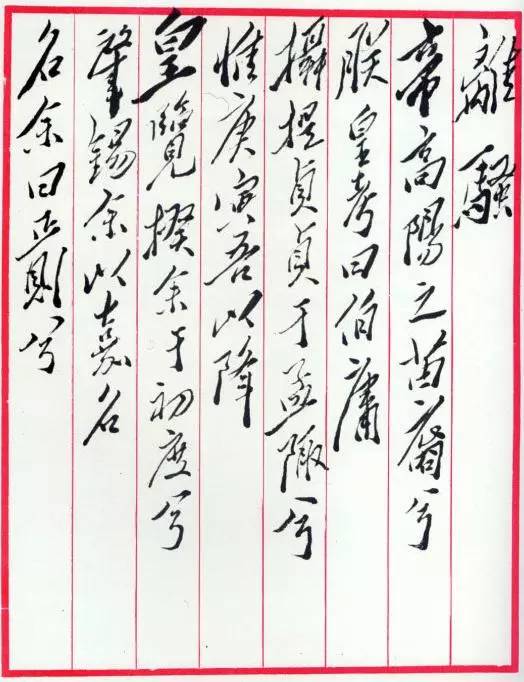 離騷
帝高陽之苗裔兮
朕皇考曰伯庸
攝提貞貞于孟陬兮
惟庚寅吾以降
皇覽揆余于初度兮
肇錫余以嘉名
名余曰正則兮